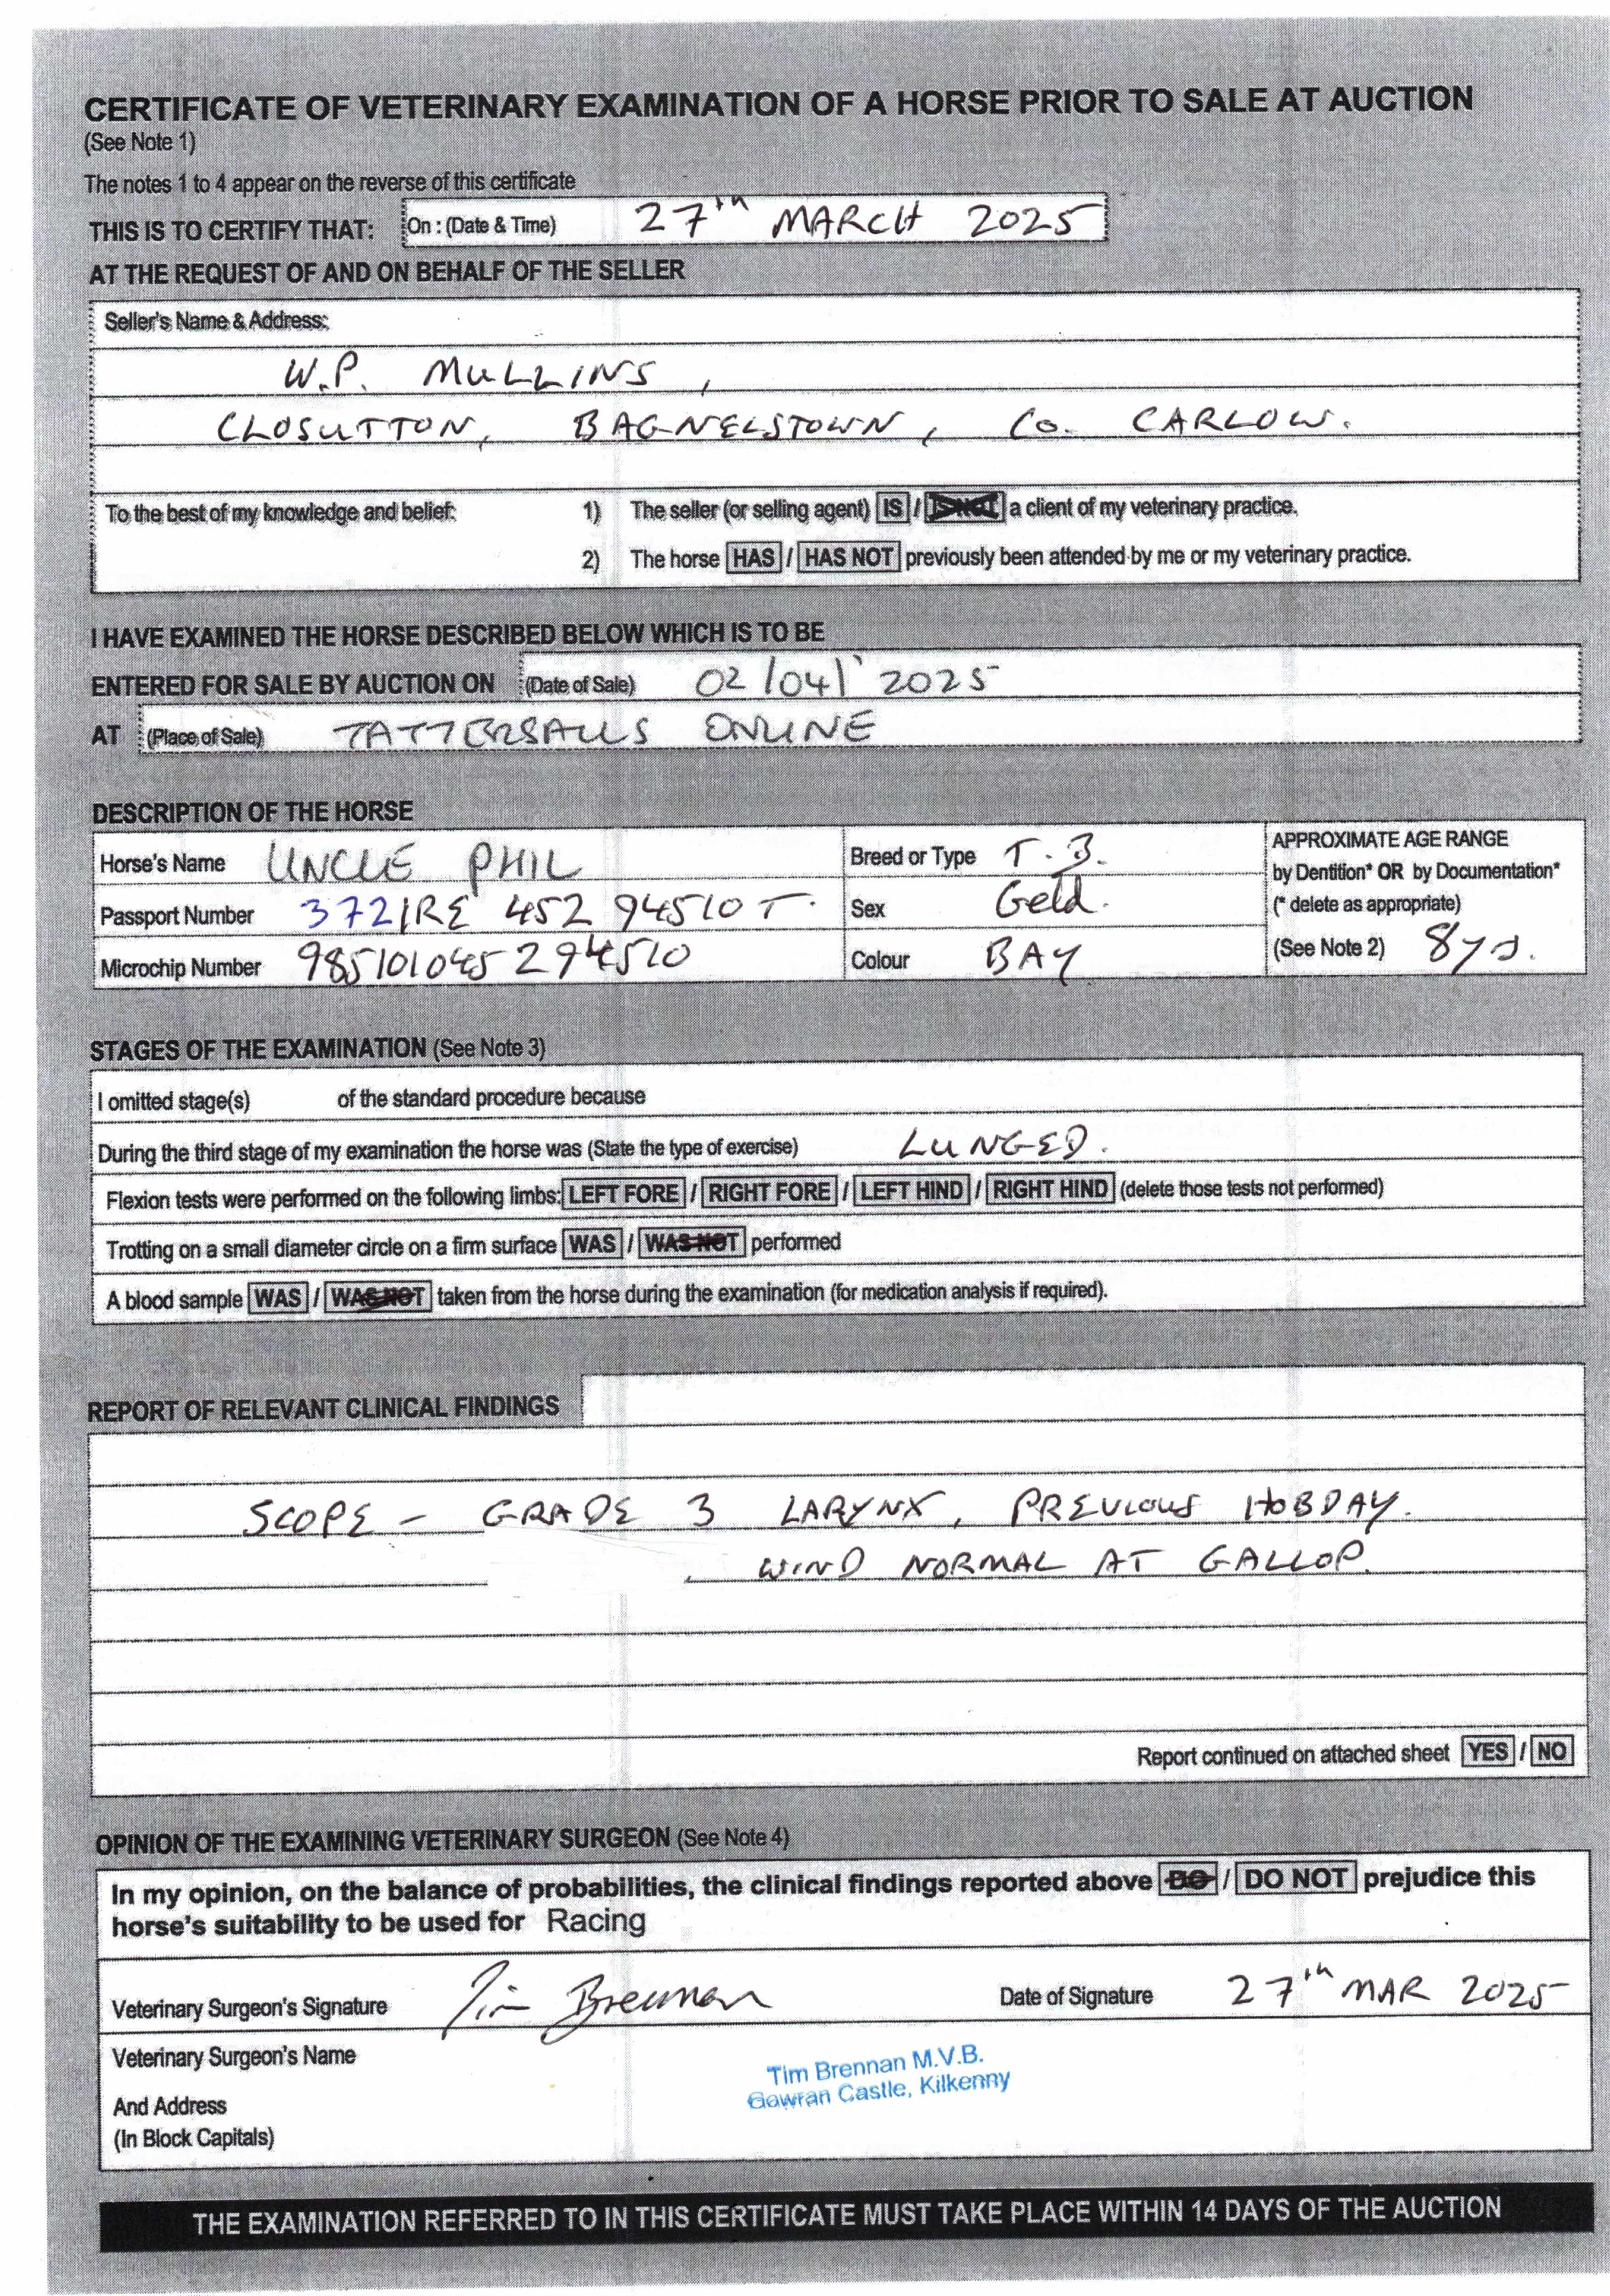 CERTIFICATE OF VETERINARY EXAMINATION OF A HORSE PRIOR TO SALE AT AUCTION
(See Note 1)
The notes 1 to 4 appear on the reverse of this certificate
THIS IS TO CERTIFY THAT: On : (Date & Time) 27th MARCH 2025
AT THE REQUEST OF AND ON BEHALF OF THE SELLER
Seller's Name & Address:
W.P. MULLINS,
CLOSUTTON, BAGNELSTOWN, Co. CARLOW.
To the best of my knowledge and belief: 1) The seller (or selling agent) IS / IS NOT a client of my veterinary practice.
2) The horse HAS / HAS NOT previously been attended by me or my veterinary practice.
I HAVE EXAMINED THE HORSE DESCRIBED BELOW WHICH IS TO BE
ENTERED FOR SALE BY AUCTION ON (Date of Sale) 02/04/2025
AT (Place of Sale) TATTERSALLS ONLINE
DESCRIPTION OF THE HORSE
Horse's Name UNCLE PHIL Breed or Type T.B. APPROXIMATE AGE RANGE
by Dentition* OR by Documentation*
Passport Number 372IRE 452 94510 T. Sex Geld. (* delete as appropriate)
Microchip Number 985101045294510 Colour BAY (See Note 2) 8ys.
STAGES OF THE EXAMINATION (See Note 3)
I omitted stage(s) of the standard procedure because
During the third stage of my examination the horse was (State the type of exercise) LUNGED.
Flexion tests were performed on the following limbs: LEFT FORE / RIGHT FORE / LEFT HIND / RIGHT HIND (delete those tests not performed)
Trotting on a small diameter circle on a firm surface WAS / WAS NOT performed
A blood sample WAS / WAS NOT taken from the horse during the examination (for medication analysis if required).
REPORT OF RELEVANT CLINICAL FINDINGS
SCOPE - GRADE 3 LARYNX, PREVIOUS HOBDAY.
WIND NORMAL AT GALLOP.
Report continued on attached sheet YES / NO
OPINION OF THE EXAMINING VETERINARY SURGEON (See Note 4)
In my opinion, on the balance of probabilities, the clinical findings reported above DO / DO NOT prejudice this
horse's suitability to be used for Racing
Veterinary Surgeon's Signature Tim Brennan Date of Signature 27th MAR 2025
Veterinary Surgeon's Name
Tim Brennan M.V.B.
Gowran Castle, Kilkenny
And Address
(In Block Capitals)
THE EXAMINATION REFERRED TO IN THIS CERTIFICATE MUST TAKE PLACE WITHIN 14 DAYS OF THE AUCTION